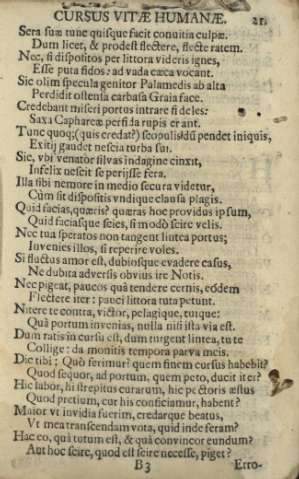 CURSUS VITÆ HUMANÆ. 21.
Sera suæ tunc quisque facit convitia culpæ.
Dum licet, & prodest flectere, flecte ratem.
Nec, si dispositos per littora videris ignes,
Esse puta fidos: ad vada cæca vocant.
Sic olim specula genitor Palamedis ab alta
Perdidit ostensa carbasa Graia face.
Credebant miseri portus intrare fideles:
Saxa Capharea perfida rupis erant.
Tunc quoq; (quis credat?) scopulis dũ pendet iniquis,
Exitij gaudet nescia turba sui.
Sic, vbi venator silvas indagine cinxit,
Infelix nescit se perijsse fera.
Illa sibi nemore in medio secura videtur,
Cùm sit dispositis vndique clausa plagis.
Quid facias, quæris? quæras hoc providus ipsum,
Quid faciasque scies, si modò scire velis.
Nec tua speratos non tangent lintea portus;
Invenies illos, si reperire voles.
Si fluctus amor est, dubiosque evadere casus,
Ne dubita adversis obvius ire Notis.
Nec pigeat, paucos quà tendere cernis, eòdem
Flectere iter: pauci littora tuta petunt.
Nitere te contra, victor, pelagique, tuique:
Quà portum invenias, nulla nisi ista via est.
Dum ratis in cursu est, dum turgent lintea, tu te
Collige: da monitis tempora parva meis.
Dic tibi: Quò ferimur? quem finem cursus habebit?
Quod sequor, ad portum, quem peto, ducit iter?
Hic labor, hi strepitus curarum, hic pectoris æstus
Quod pretium, cur his conficiamur, habent?
Maior vt invidia fuerim, credarque beatus,
Vt mea transcendam vota, quid inde feram?
Hac eo, quà tutum est, & quà convincor eundum?
Aut hoc scire, quod est scire necesse, piget?
B 3 Erro-